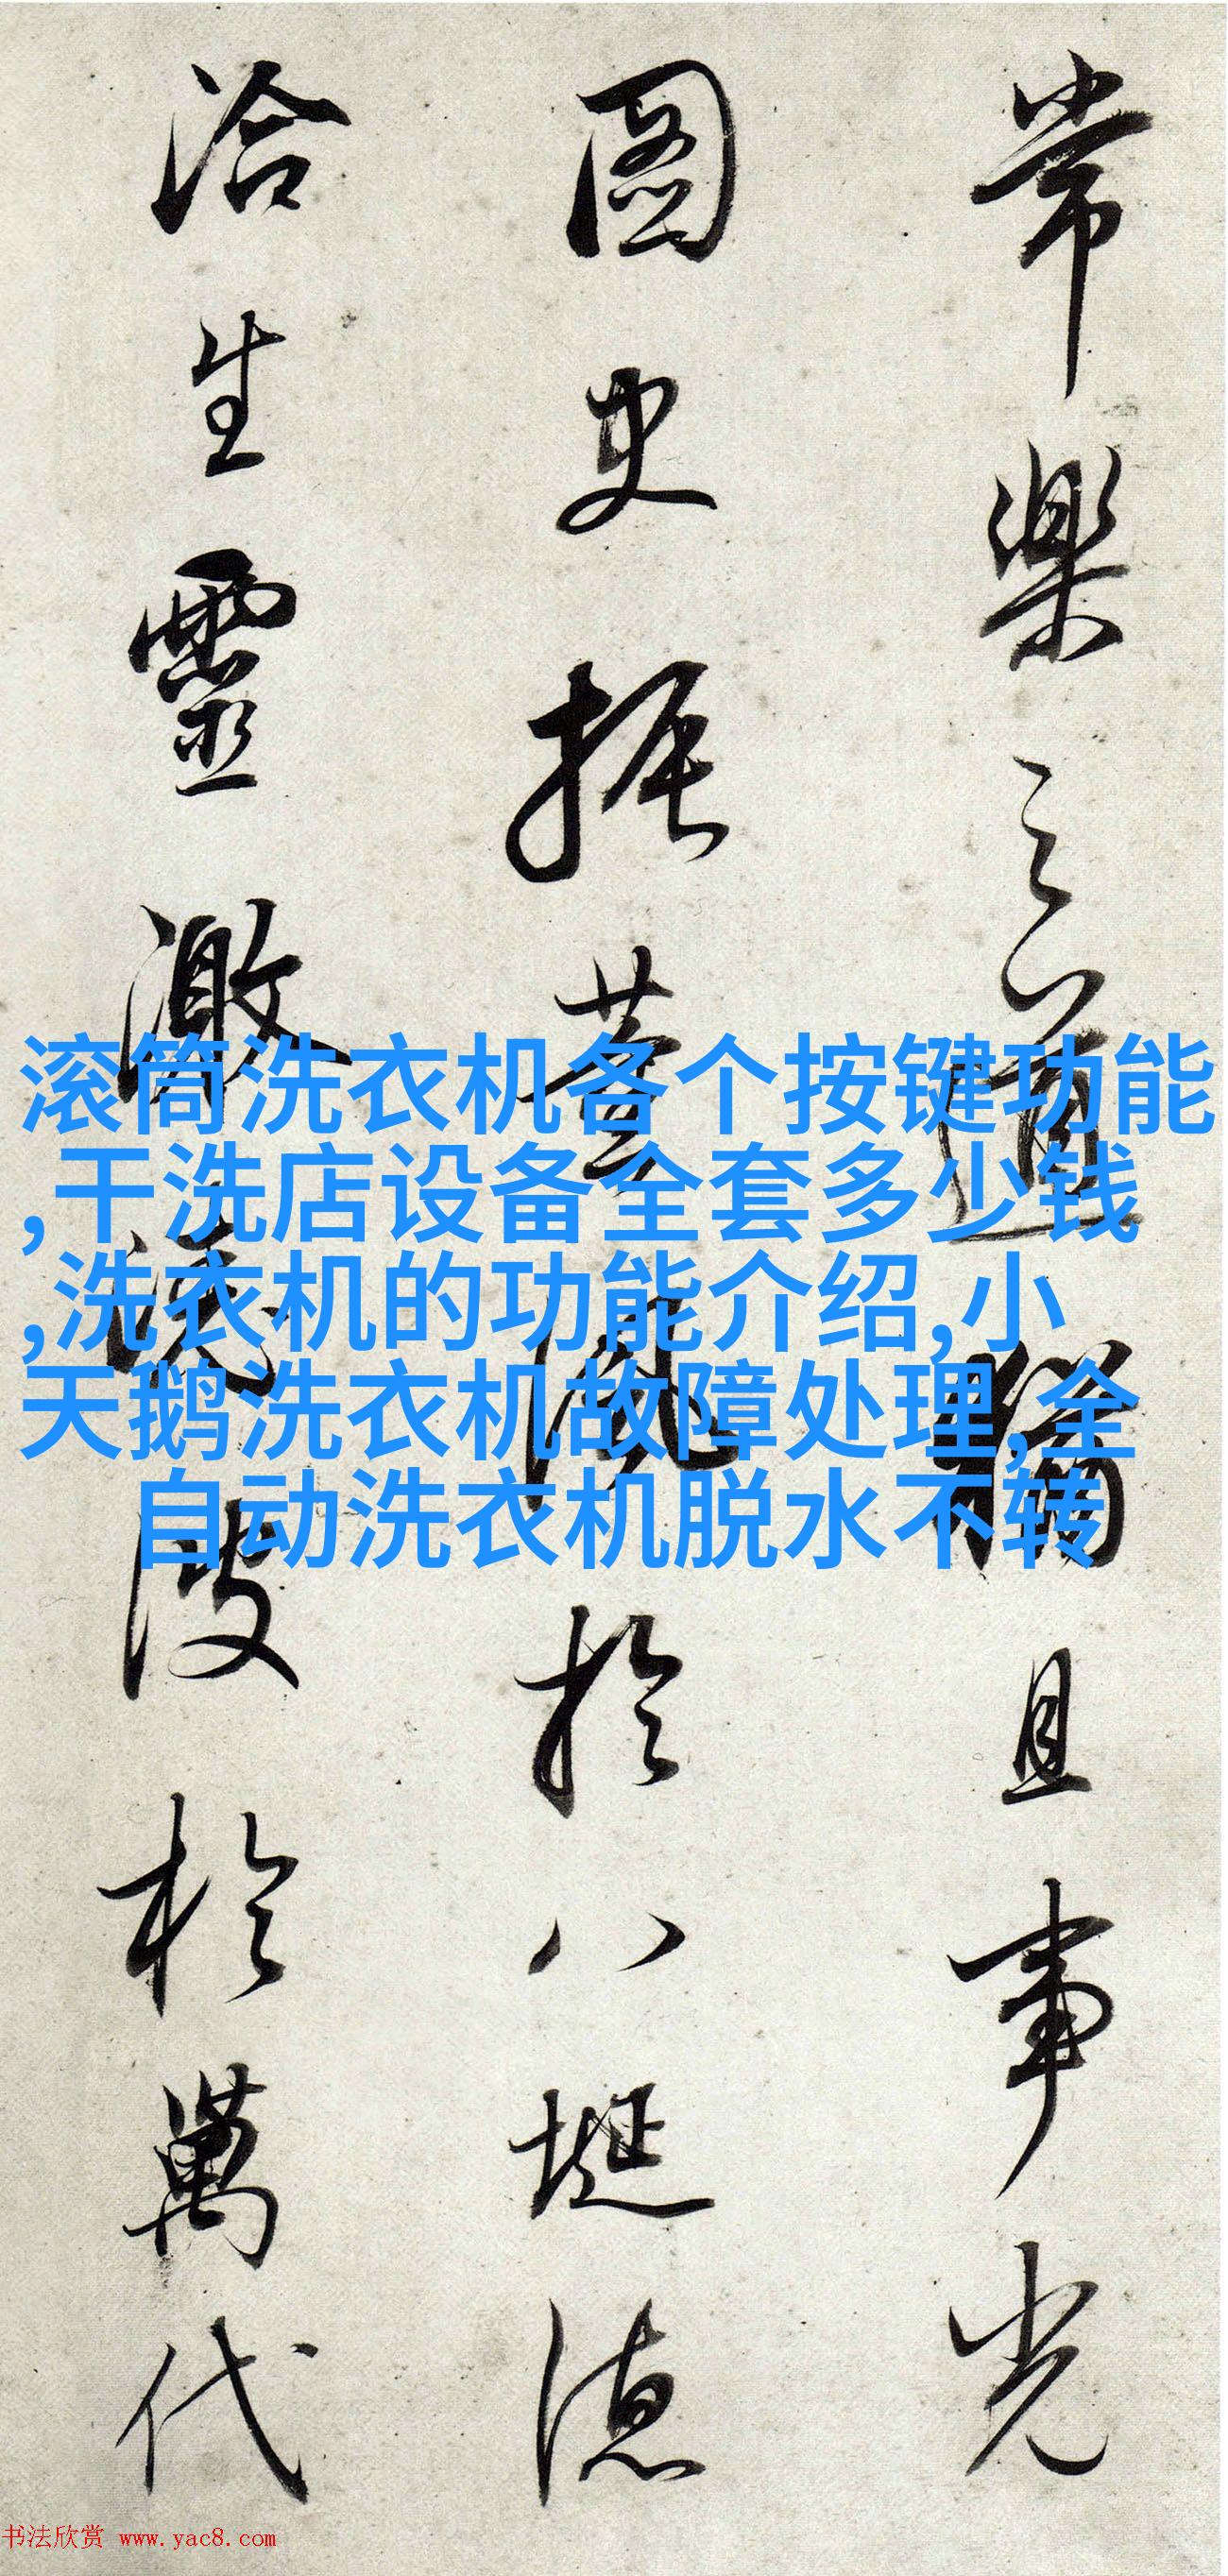 常樂之道 且事光
圖史振 風於八埏德
洽生靈激 波於萬代
滚筒洗衣机各个按键功能
,干洗店设备全套多少钱
,洗衣机的功能介绍,小
天鹅洗衣机故障处理,全
自动洗衣机脱水不转
书法欣赏 www.yac8.com